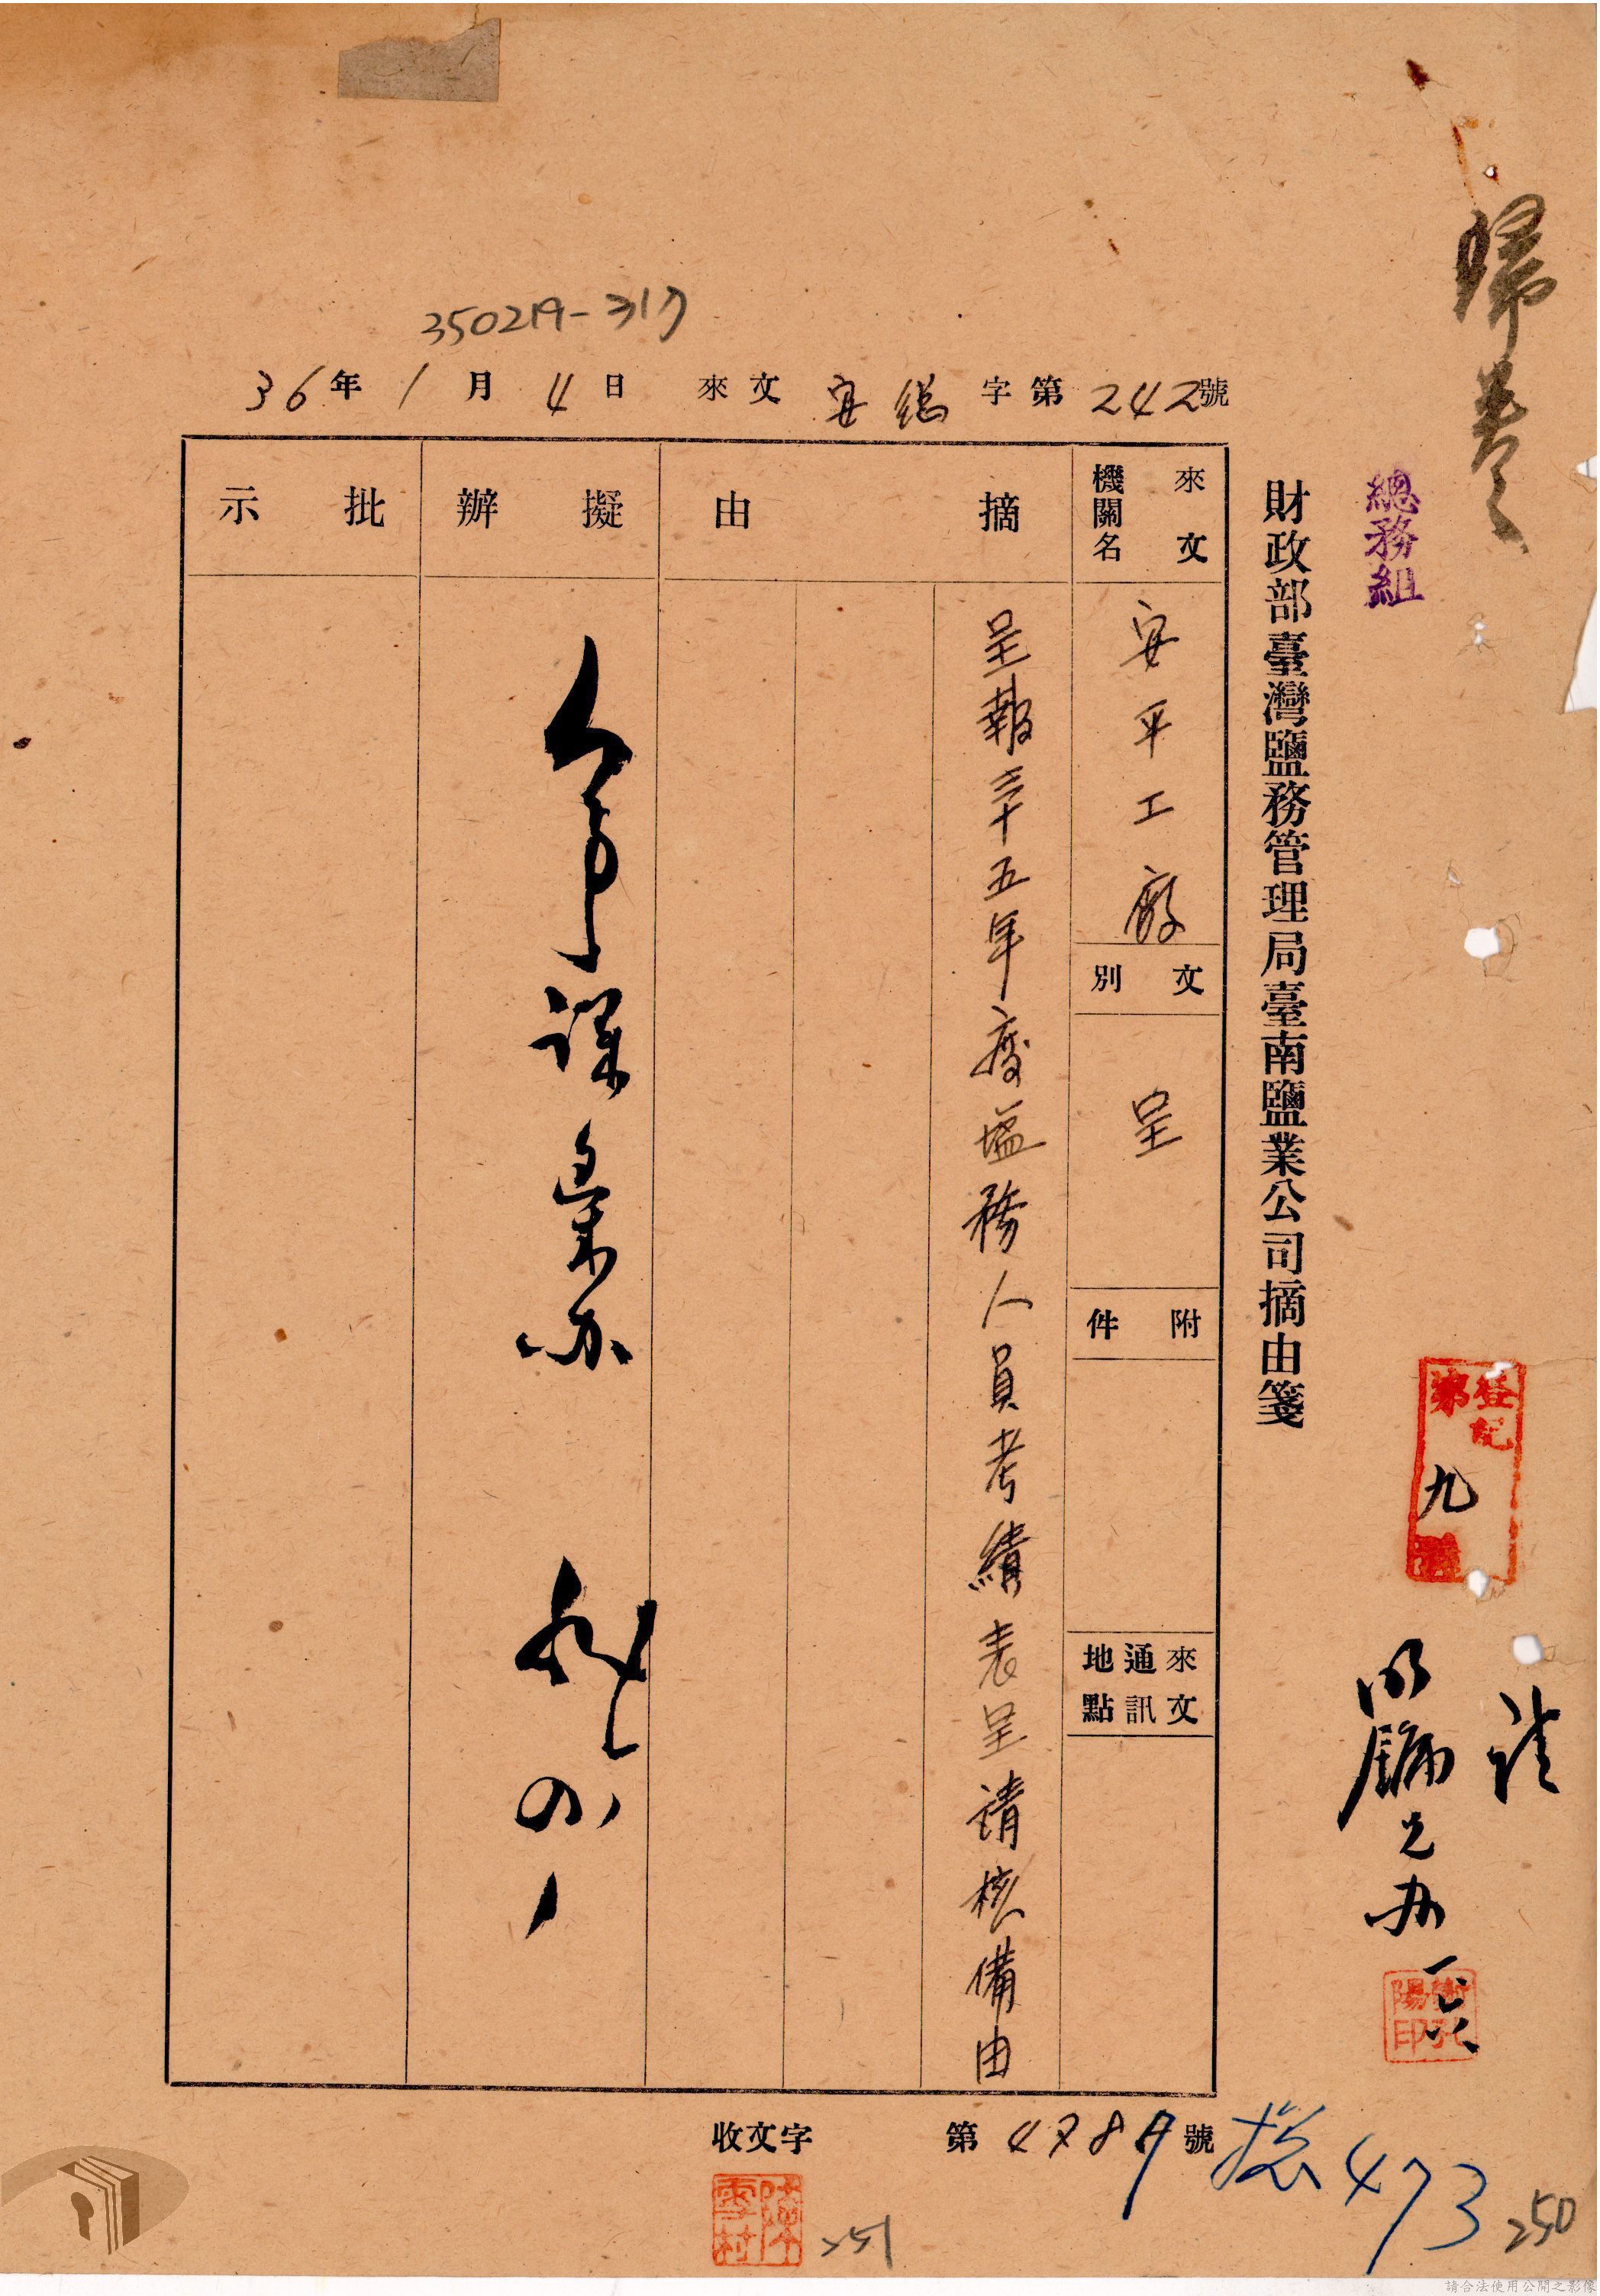 歸卷
總務組
登記
第
九
號
請
明鏞兄办
財政部臺灣鹽務管理局臺南鹽業公司摘由箋
350219-317
36年1月4日 來文安總字第242號
來文機關名
安平工廠
文別
呈
附件
來文通訊地點
摘由
呈報三十五年度塩務人員考績表呈請核備由
擬辦
人事課彙办
批示
收文字 第4787號
總473
250
251
請合法使用公開之影像